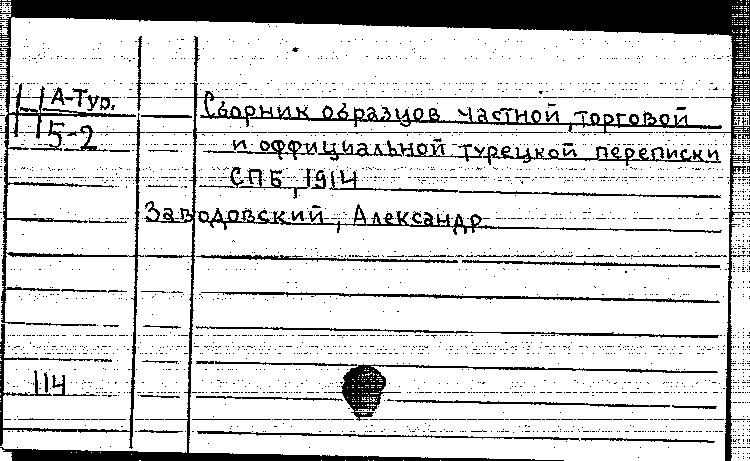 А-Тур.
5-2
Сборник образцов частной, торговой
и оффициальной турецкой переписки
СПБ, 1914
Заводовский, Александр
114